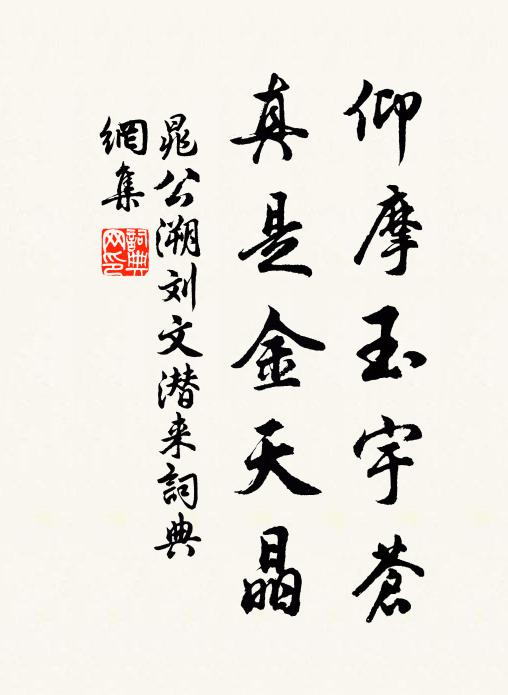 仰摩玉宇蒼
真是金天晶
晁公溯刘文潜来詞典
網集
詞典
网印